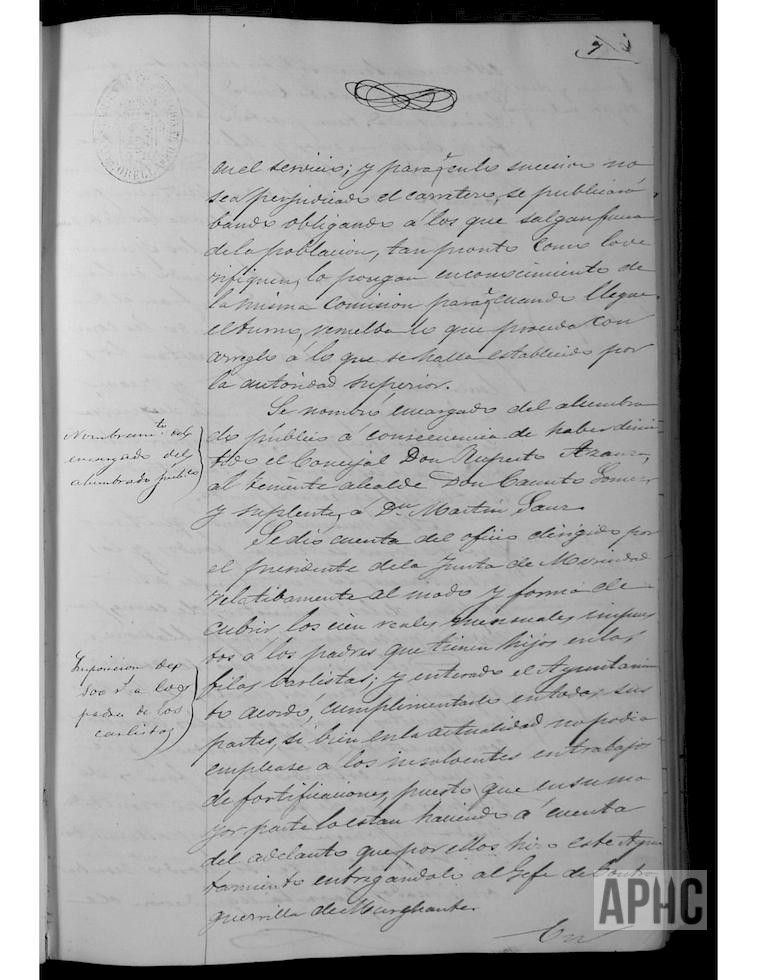 en el servicio; y para q.e en lo sucesivo no
sea perjudicado el carretero, se publicará
bando obligando á los que salgan fuera
de la poblacion, tan pronto como lo ve
rifiquen, lo pongan en conocimiento de
la misma Comision para q.e cuando llegue
el turno, resuelba lo que proceda con
arreglo á lo que se halla establecido por
la autoridad superior.
Nombram.to del
encargado del
alumbrado púb.co
Se nombró encargado del alumbra
do público á consecuencia de haber dimi
tido el Concejal Don Ruperto Azanza,
al teniente alcalde Don Canuto Gomez
y suplente, á Dn Martin Sanz.
Se dió cuenta del oficio dirigido por
el presidente de la Junta de Merindad
relatibamente al modo y forma de
cubrir los cien reales mensuales impues
tos á los padres que tienen hijos en las
Imposicion de
100 r.s a los
padres de los
carlistas
filas Carlistas; y enterado el Ayuntamien
to acordó, cumplimentarlo en todas sus
partes, si bien en la actualidad no podia
emplease a los insolventes en trabajos
de fortificaciones, puesto que en su ma
yor parte lo estan haciendo á cuenta
del adelanto que por ellos hizo este Ayun
tamiento entregándolo al Gefe de Contra
guerrilla de
En
APHC